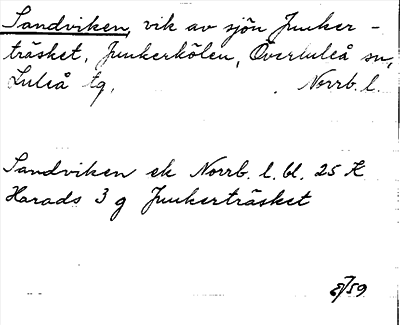 Sandviken, vik av sjön Junker-
träsket, Junkerkölen, Överluleå sn,
Luleå tg. Norrb. l.
Sandviken ek Norrb. l. bl. 25 K
Harads 3 g Junkerträsket
/59